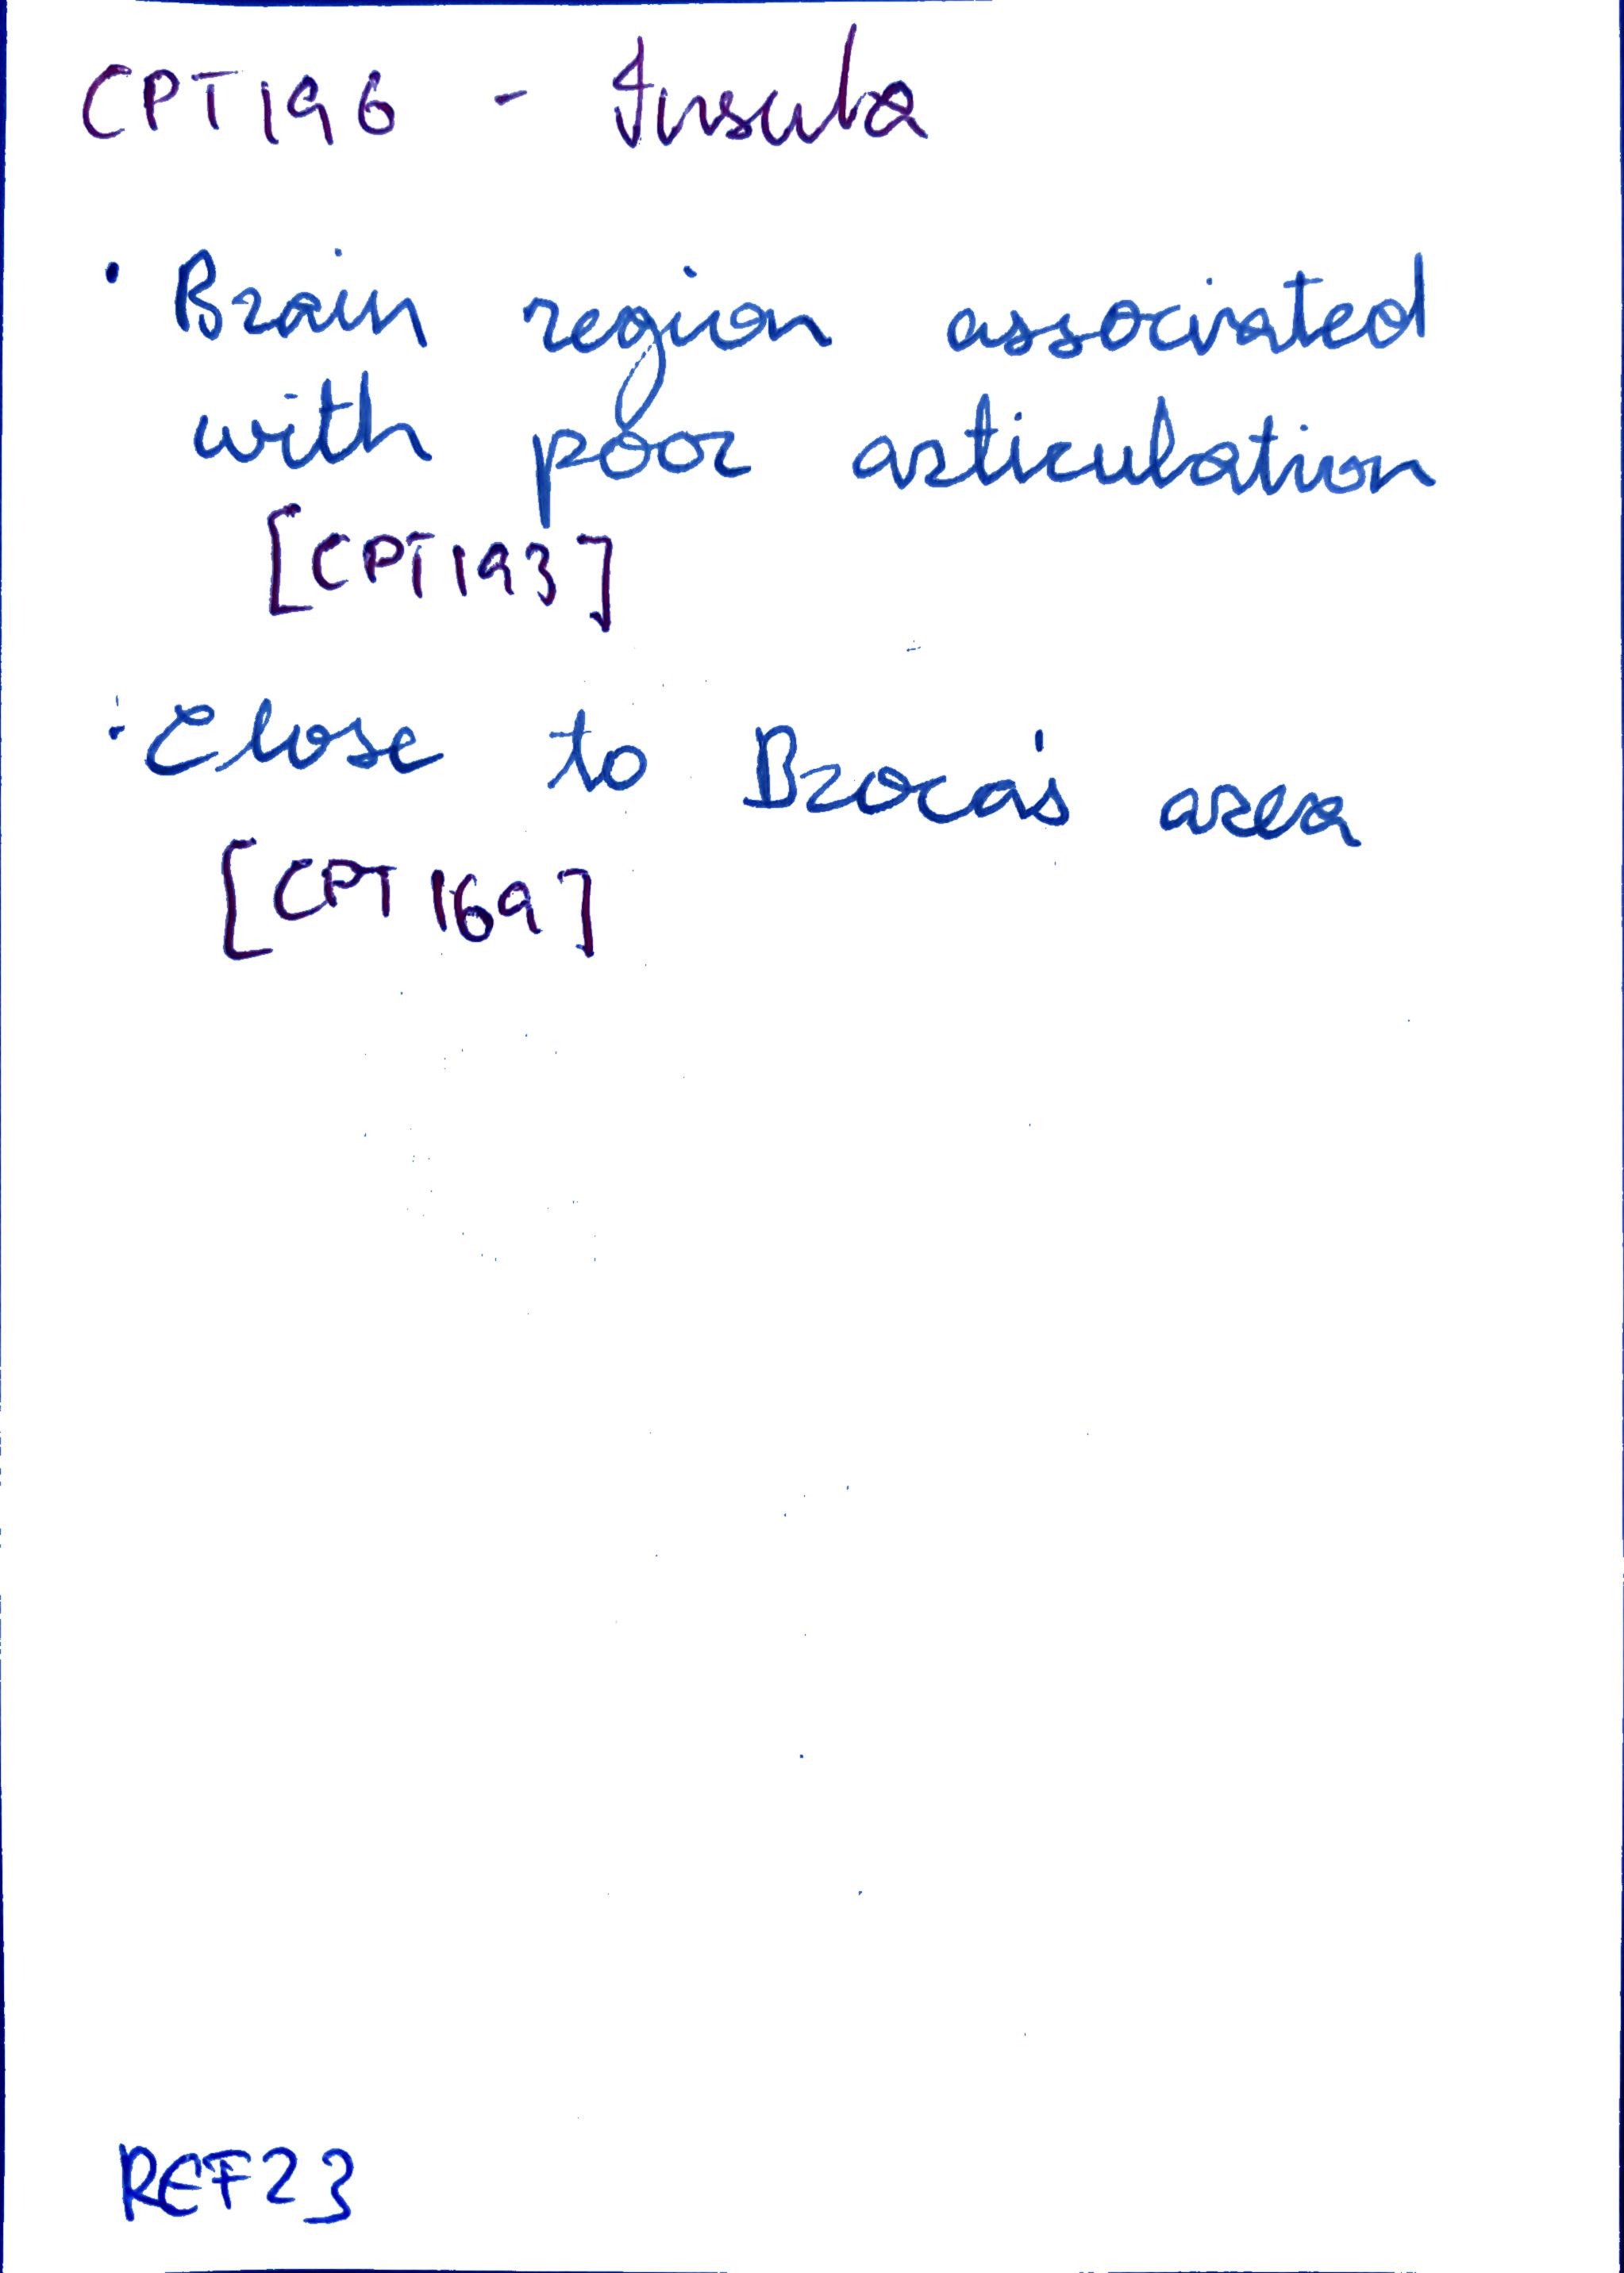 CPT196 - Insula
· Brain region associated
with poor articulation
[CPT193]
· Close to Broca's area
[CPT169]
REF23